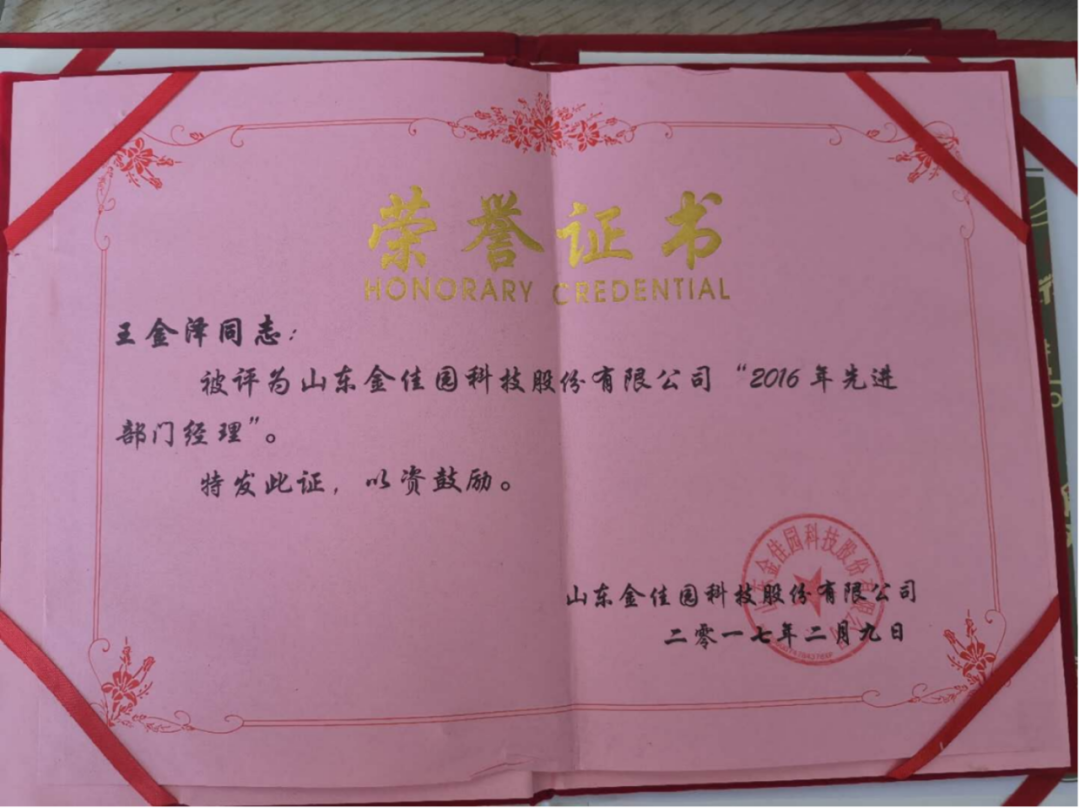 荣誉证书
HONORARY CREDENTIAL
王金泽同志：
被评为山东金佳园科技股份有限公司“2016年先进
部门经理”。
特发此证，以资鼓励。
山东金佳园科技股份有限公司
山东金佳园科技股份有限公司
二零一七年二月九日